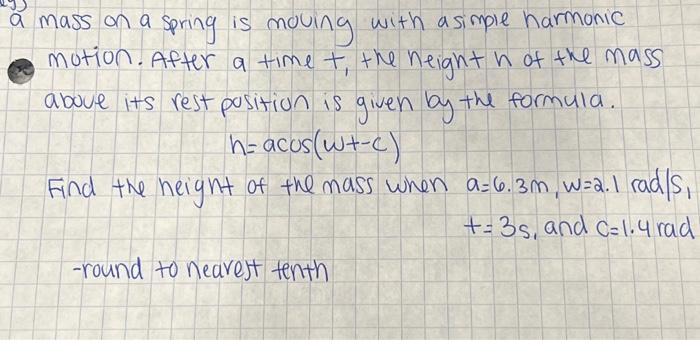 a mass on a spring is moving with a simple harmonic
motion. After a time t, the height h of the mass
above its rest position is given by the formula.
h=acos(wt-c)
Find the height of the mass when a=6.3m, w=2.1 rad/s,
t=3s, and c=1.4 rad
-round to nearest tenth